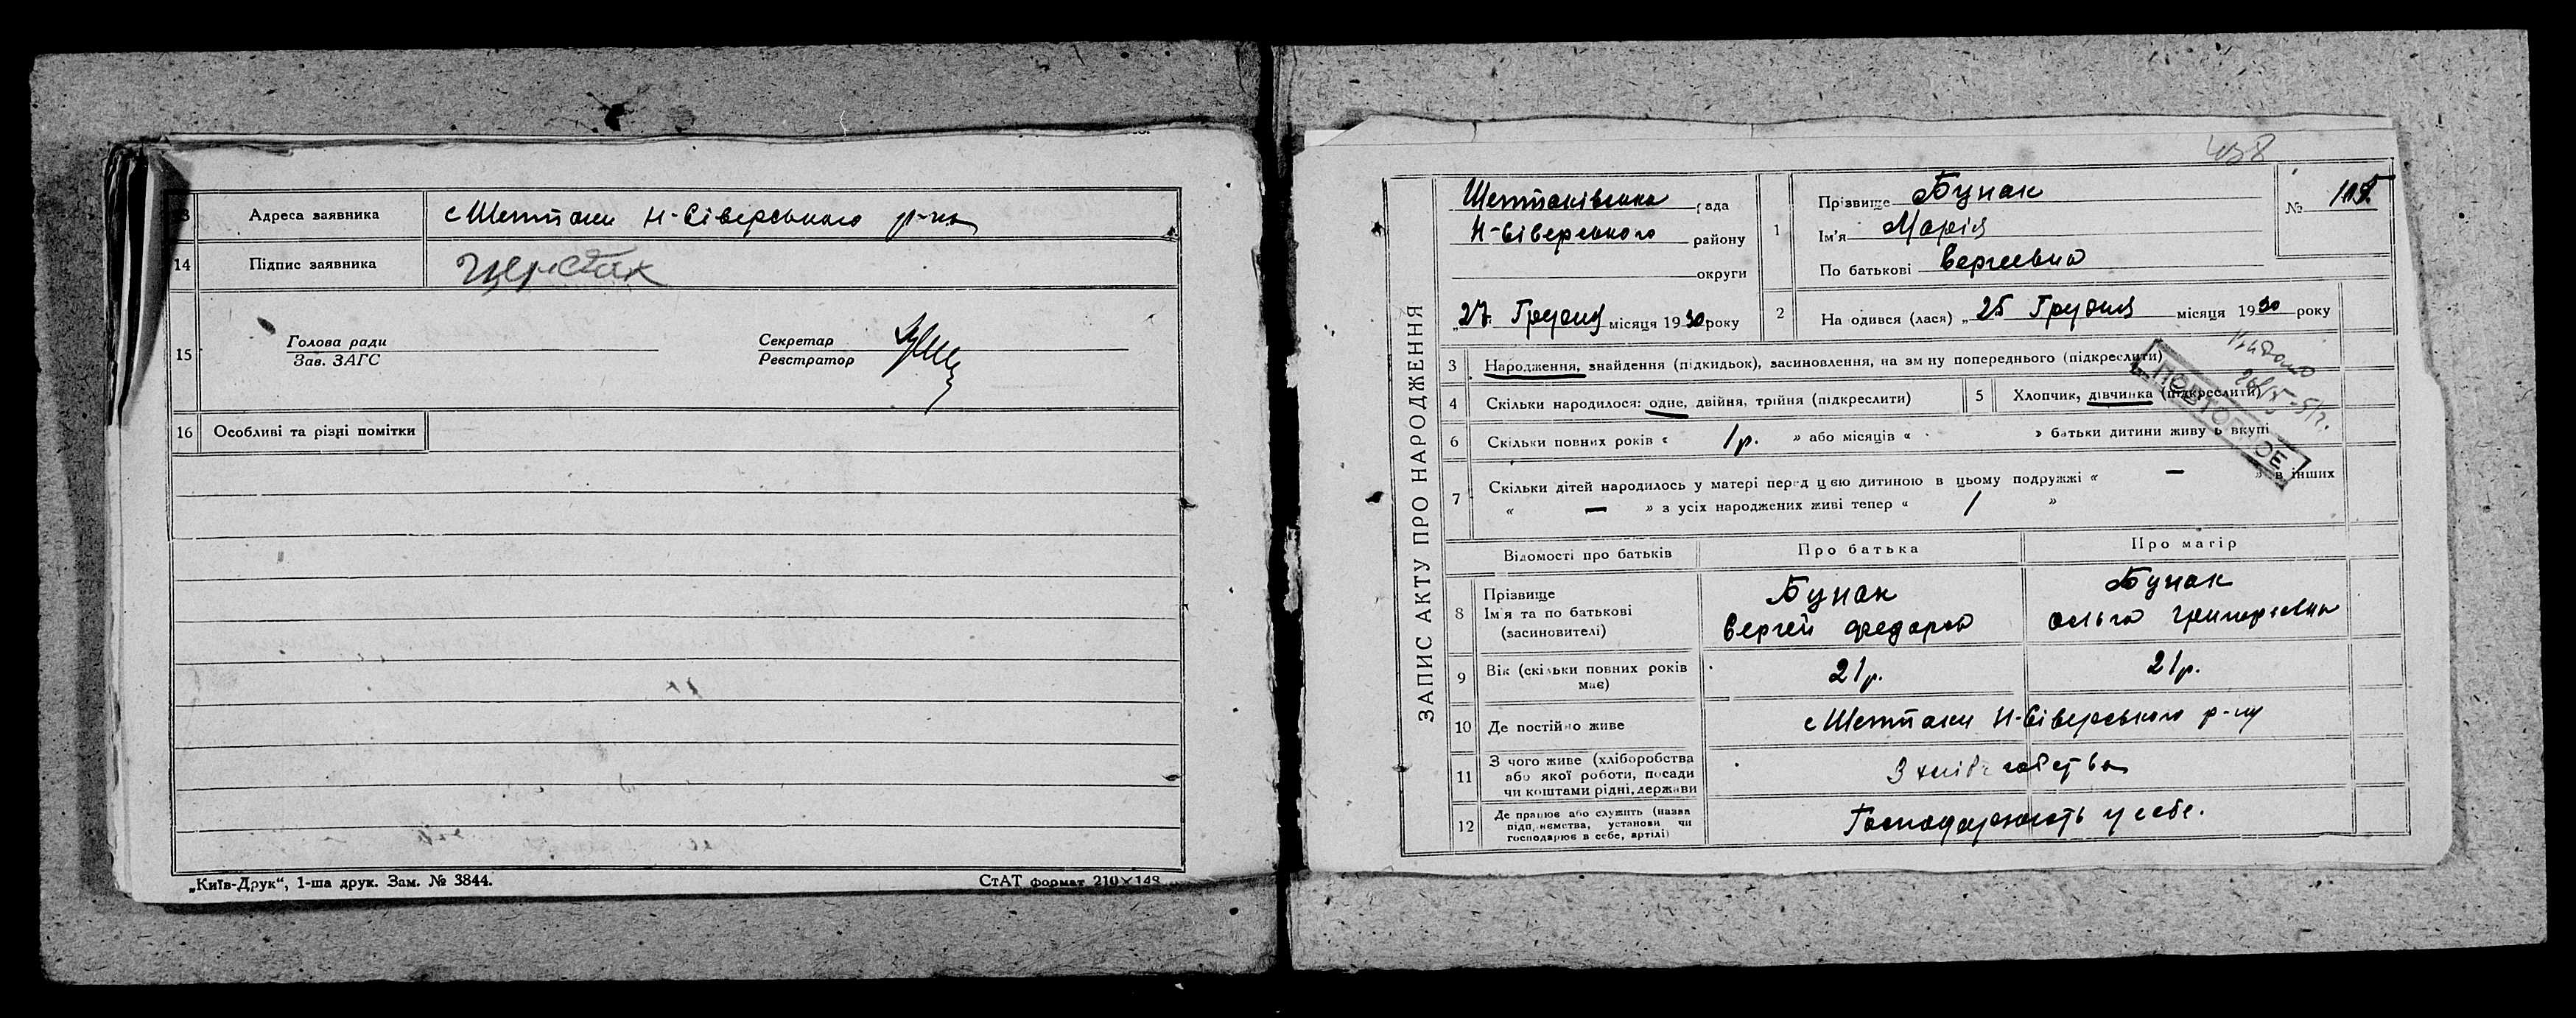 13 Адреса заявника с Шептаки Н-Сіверського р-на
14 Підпис заявника
15 Голова ради Секретар
Зав. ЗАГС Реєстратор
16 Особливі та різні помітки
„Київ-Друк“, 1-ша друк. Зам. № 3844.
СтАТ формат 210×148
438
ЗАПИС АКТУ ПРО НАРОДЖЕННЯ
Шептаківська рада
Н-Сіверського району
округи
„27 Грудня місяця 1930 року
1 Прізвище Бунак
Ім'я Марія
По батькові Сергеевна
№
2 Народився (лася) „25 Грудня місяця 1930 року
3 Народження, знайдення (підкидьок), засиновлення, на зміну попереднього (підкреслити)
ПОВТОРНОЕ
4 Скільки народилося: одне, двійня, трійня (підкреслити)
5 Хлопчик, дівчинка (підкреслити)
6 Скільки повних років « 1 р. » або місяців « » батьки дитини живуть вкупі
7 Скільки дітей народилось у матері перед цією дитиною в цьому подружжі « — » в інших
« — » з усіх народжених живі тепер « 1 »
Відомості про батьків Про батька Про матір
8 Прізвище Бунак Бунак
Ім'я та по батькові Сергей Федоров Ольга Григорьевна
(засиновителі)
9 Вік (скільки повних років має) 21 р. 21 р.
10 Де постійно живе с Шептаки Н-Сіверського р-ну
11 З чого живе (хліборобства
або якої роботи, посади
чи коштами рідні, держави
З хліборобства
12 Де працює або служить (назва
підприємства, установи чи
господарює в себе, артілі)
Господарюють у себе.